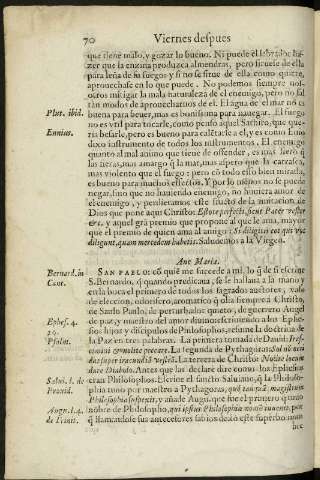 70 Viernes despues
que tiene malo, y gozar lo bueno. Ni puede el labrador ha-
zer que la enzina produzca almendras, pero siruese de ella
para leña de su fuego: y si no se sirue de ella como quiere,
aprouechase en lo que puede. No podemos siempre nos-
otros mitigar la mala naturaleza de el enemigo, pero no fal
tan modos de aprouecharnos de el. El agua de el mar no es
Plut. ibid. buena para beuer, mas es bonissima para nauegar. El fuego
no es vtil para tocarle, como penso aquel Satiro, que que-
Ennius. ria besarle, pero es bueno para calẽtarse a el, y es como
doxo instrumento de todos los instrumentos. El enemigo
quanto al mal animo que tiene de offender, es mas
que las mas amargo q̃ la mar, mas aspero que la
mas violento que el fuego: pero cõ todo esso bien mirada,
es bueno para muchos effectos. Y por lo menos no se puede
negar, sino que no huuiendo enemigo, no huuiera amor de
el enemigo, y perdieramos este fructo de la imitacion de
Dios que pone aqui Christo: Estote perfecti, sicut Pater vester
&c. y aquel grã premio que propone al que le ama, mayor
que el premio de quien ama al amigo: Si diligitis eos qui vos
diligunt, quam mercedem habetis. Saludemos a la Virgen.
Aue Maria.
Bernard. in SAN PABLO: cõ quiẽ me succede a mi, lo q̃ de si escriue
Cant. S. Bernardo, q̃ quando predicaua, se le hallaua a la mano y
en la boca el primero de todos los sagrados auctores, vaso
de eleccion, odorifero, aromatico q̃ olia siempre a Christo,
de Saulo Paulo, de perturbador quieto, de guerrero Angel
Ephes. 4. de paz, y maestro del amor diuino: escriuiendo a los Ephe-
20. sios hijos y discipulos de Philosophos, resume la doctrina de
Psalm. la Paz en tres palabras. La primera tomada de Dauid: Iras-
cimini & nolite peccare. La segunda de Pythagoras: Sol nõ occi
dat super iracundiã vestrã. La tercera de Christo: Nolite locum
dare Diabolo. Antes que las declare dire como los Ephesios
Salui. l. de eran Philosophos. Escriue el sancto Saluiano, q̃ la Philoso-
Prouid. phia tuuo por maestro a Pythagoras, quẽ magistrum
Philosophia suspexit, y añade Augu. que fue el primero q̃ tuuo
Aug. l. 4. nõbre de Philosopho, qui ipsius Philosophiæ nomẽ inuenit, por
de Trinit. q̃ llamandose sus antecessores sabios dexo este superbo nom
bre